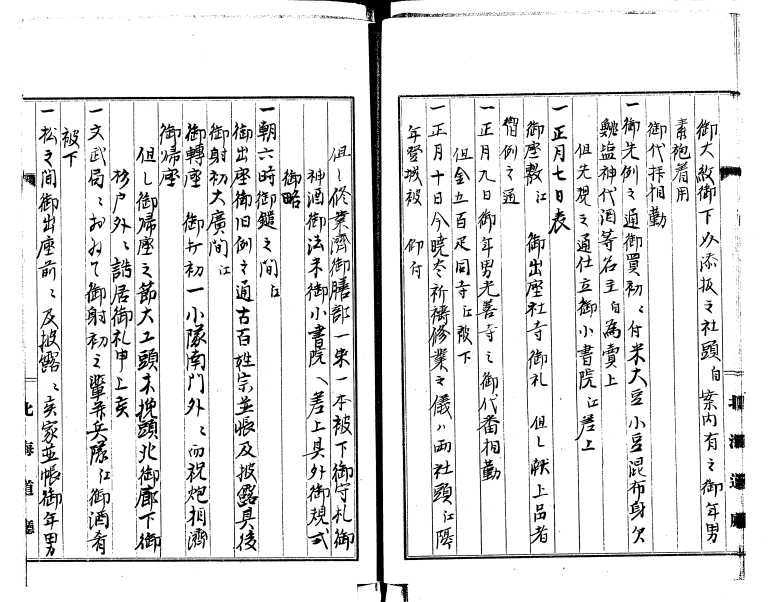 御大紋御下〆添抜之社頭自案内有之御年男
素袍着用
御代拝相勤
一御先例之通御買初ニ付米大豆小豆昆布身欠
鯡塩神代酒等名主自為賣上
但先規之通仕立御小書院江差上
一正月七日表
御座敷江 御出座社寺御礼 但シ献上品者
習例之通
一正月九日御年男光善寺之御代香相勤
但金五百疋同寺江被下
一正月十日今暁冬祈祷修業之儀ハ両社頭江隔
年登城被 仰付
但シ修業済御膳部一朱一本被下御守札御
神酒御法米御小書院ヘ差上其外御規式
御略
一朝六時御鎧之間江
御出座御旧例之通古百姓宗並帳及披露其後
御射初大廣間江
御轉座 御打初一小隊南門外ニ而祝炮相済
御帰座
但シ御帰座之節大工頭木挽頭北御廊下御
杉戸外ニ誥居御礼申上亥
一文武局ニおゐて御射初之輩并兵隊江御酒肴
被下
一松之間御出座前ニ及披露ニ亥家並帳御年男
北海道廳
北海道廳